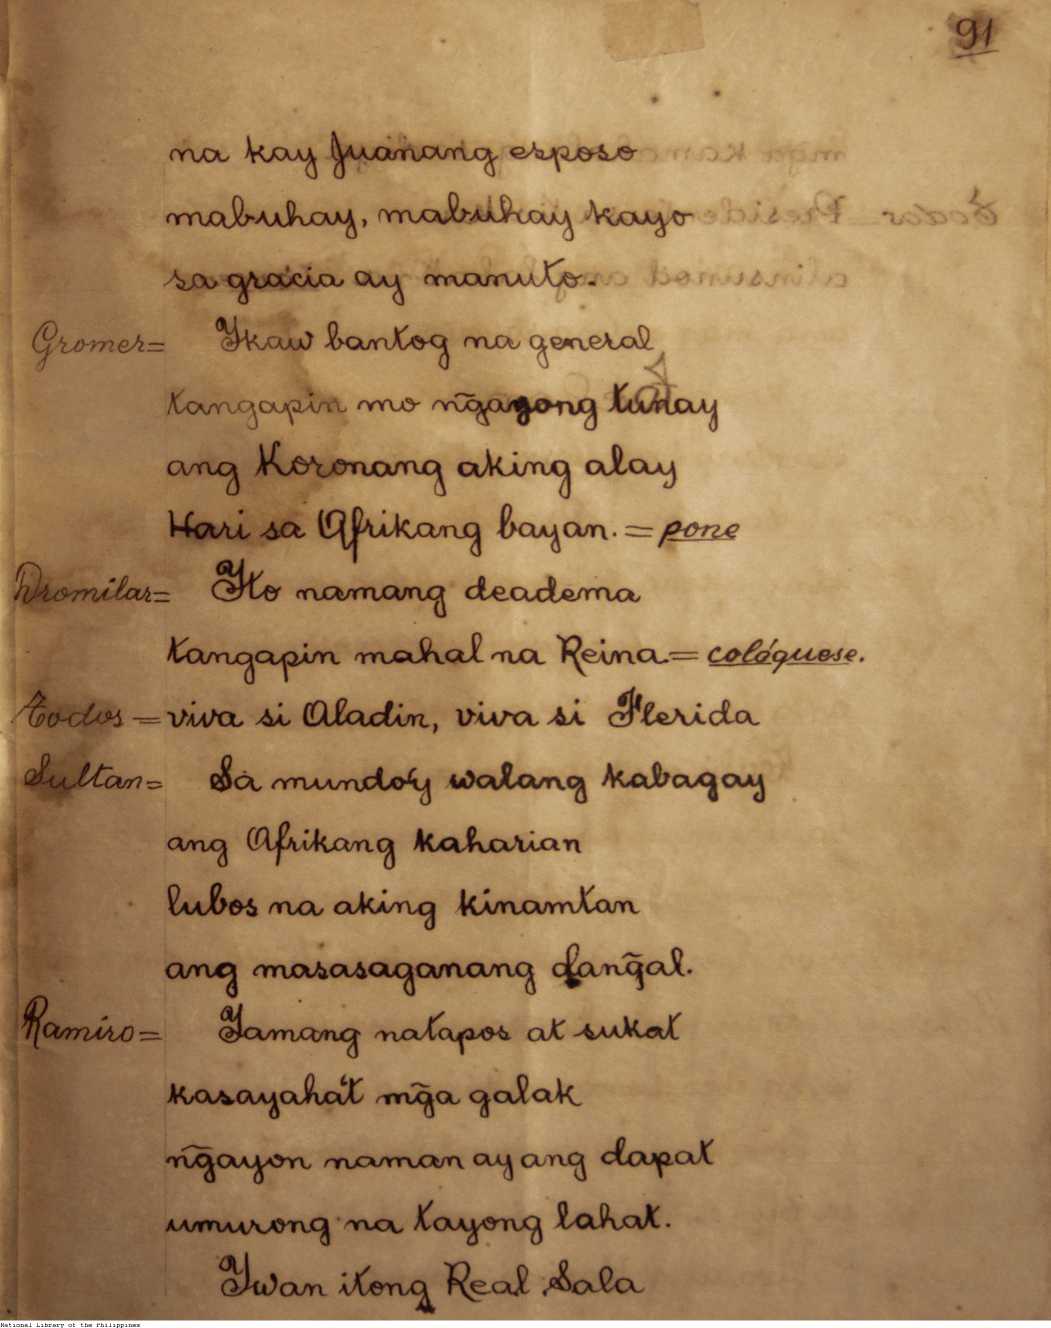 91
na kay Juanang esposo
mabuhay, mabuhay kayo
sa gracia ay manuto.
Gromer= Ykaw bantog na general
tangapin mo ng̃ayong tunay
ang Koronang aking alay
Hari sa Afrikang bayan. = pone
Dromilar= Yto namang deadema
tangapin mahal na Reina.= colóquese.
Todos = viva si Aladin, viva si Flerida
Sultan= Sa mundo'y walang kabagay
ang Afrikang kaharian
lubos na aking kinamtan
ang masasaganang dang̃al.
Ramiro= Yamang natapos at sukat
kasayaha't mg̃a galak
ng̃ayon naman ay ang dapat
umurong na tayong lahat.
Ywan itong Real Sala
National Library of the Philippines